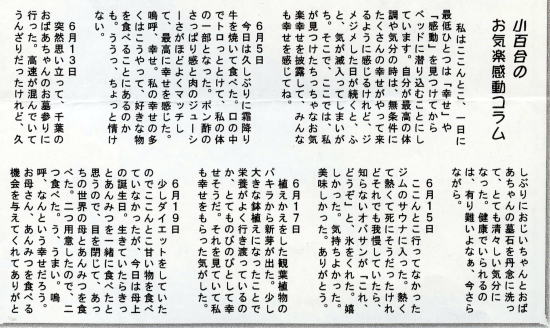 小百合の
お気楽感動コラム
私はここんとこ、一日に
最低ひとつは「幸せ」や
「感動」を見つけてから
ベッドに潜り込むことにし
ています。自分が最高の体
調や気分の時は、無条件に
たくさんの幸せがやって来
るように感じるけれど、ジ
メジメした日が続くと、ふ
と、気が滅入ってしまいが
ち。そこで、ここでは、私
が見つけたちっちゃなお気
楽幸せを披露して、みんな
も幸せを感じてね。
6月5日
今日は久しぶりに霜降り
牛を焼いて食べた。口の中
でトロっととけて、私の体
の一部となった。ポン酢の
さっぱり感と肉のジューシ
ーさがほどよくマッチし
て、最高に幸せを感じた。
嗚呼、幸せ。私の幸せの多
くはこうやって、好きな物
を食べることにあるのか
も。ううっ、ちょっと情け
ない。
6月13日
突然思い立って、千葉の
おばあちゃんのお墓参りに
行った。高速が混んでいて
うんざりだったけれど、久
しぶりにおじいちゃんとおば
あちゃんの墓石を丹念に洗っ
て、とても清々しい気分に
なった。健康でいられるの
は、有り難いよなぁ、今さら
ながら。
6月15日
ここんとこ行ってなかった
ジムのサウナに入った。熱く
て熱くて死にそうだったけれ
どそれでも我慢していたら、
知らないオバサンが「これ、
どうぞ」と、氷をくれた。嬉
しかった。気持ちよかった。
美味しかった。ありがとう。
6月17日
植かえをした観葉植物の
パキラから新芽が出た。少し
大きな鉢植えになったので、
栄養がよく行き渡っているの
か、とてものびのびとして幸
せそうだ。それを見ていて私
も幸せをもらった気がした。
6月19日
少しダイエットをしていた
のでここんとこ甘い物を食べ
ていなかったが、今日は母上
の誕生日。生きていたらきっ
とあんみつを一緒に食べたと
思うので、目を閉じて、あっ
ちの世界の母とあんみつを食
べた。二つ用意したので、二
つ食べた。うっ、うまい。嗚
呼、なんという幸せだろう。
お母さん、あんみつを食べる
機会を与えてくれてありがと